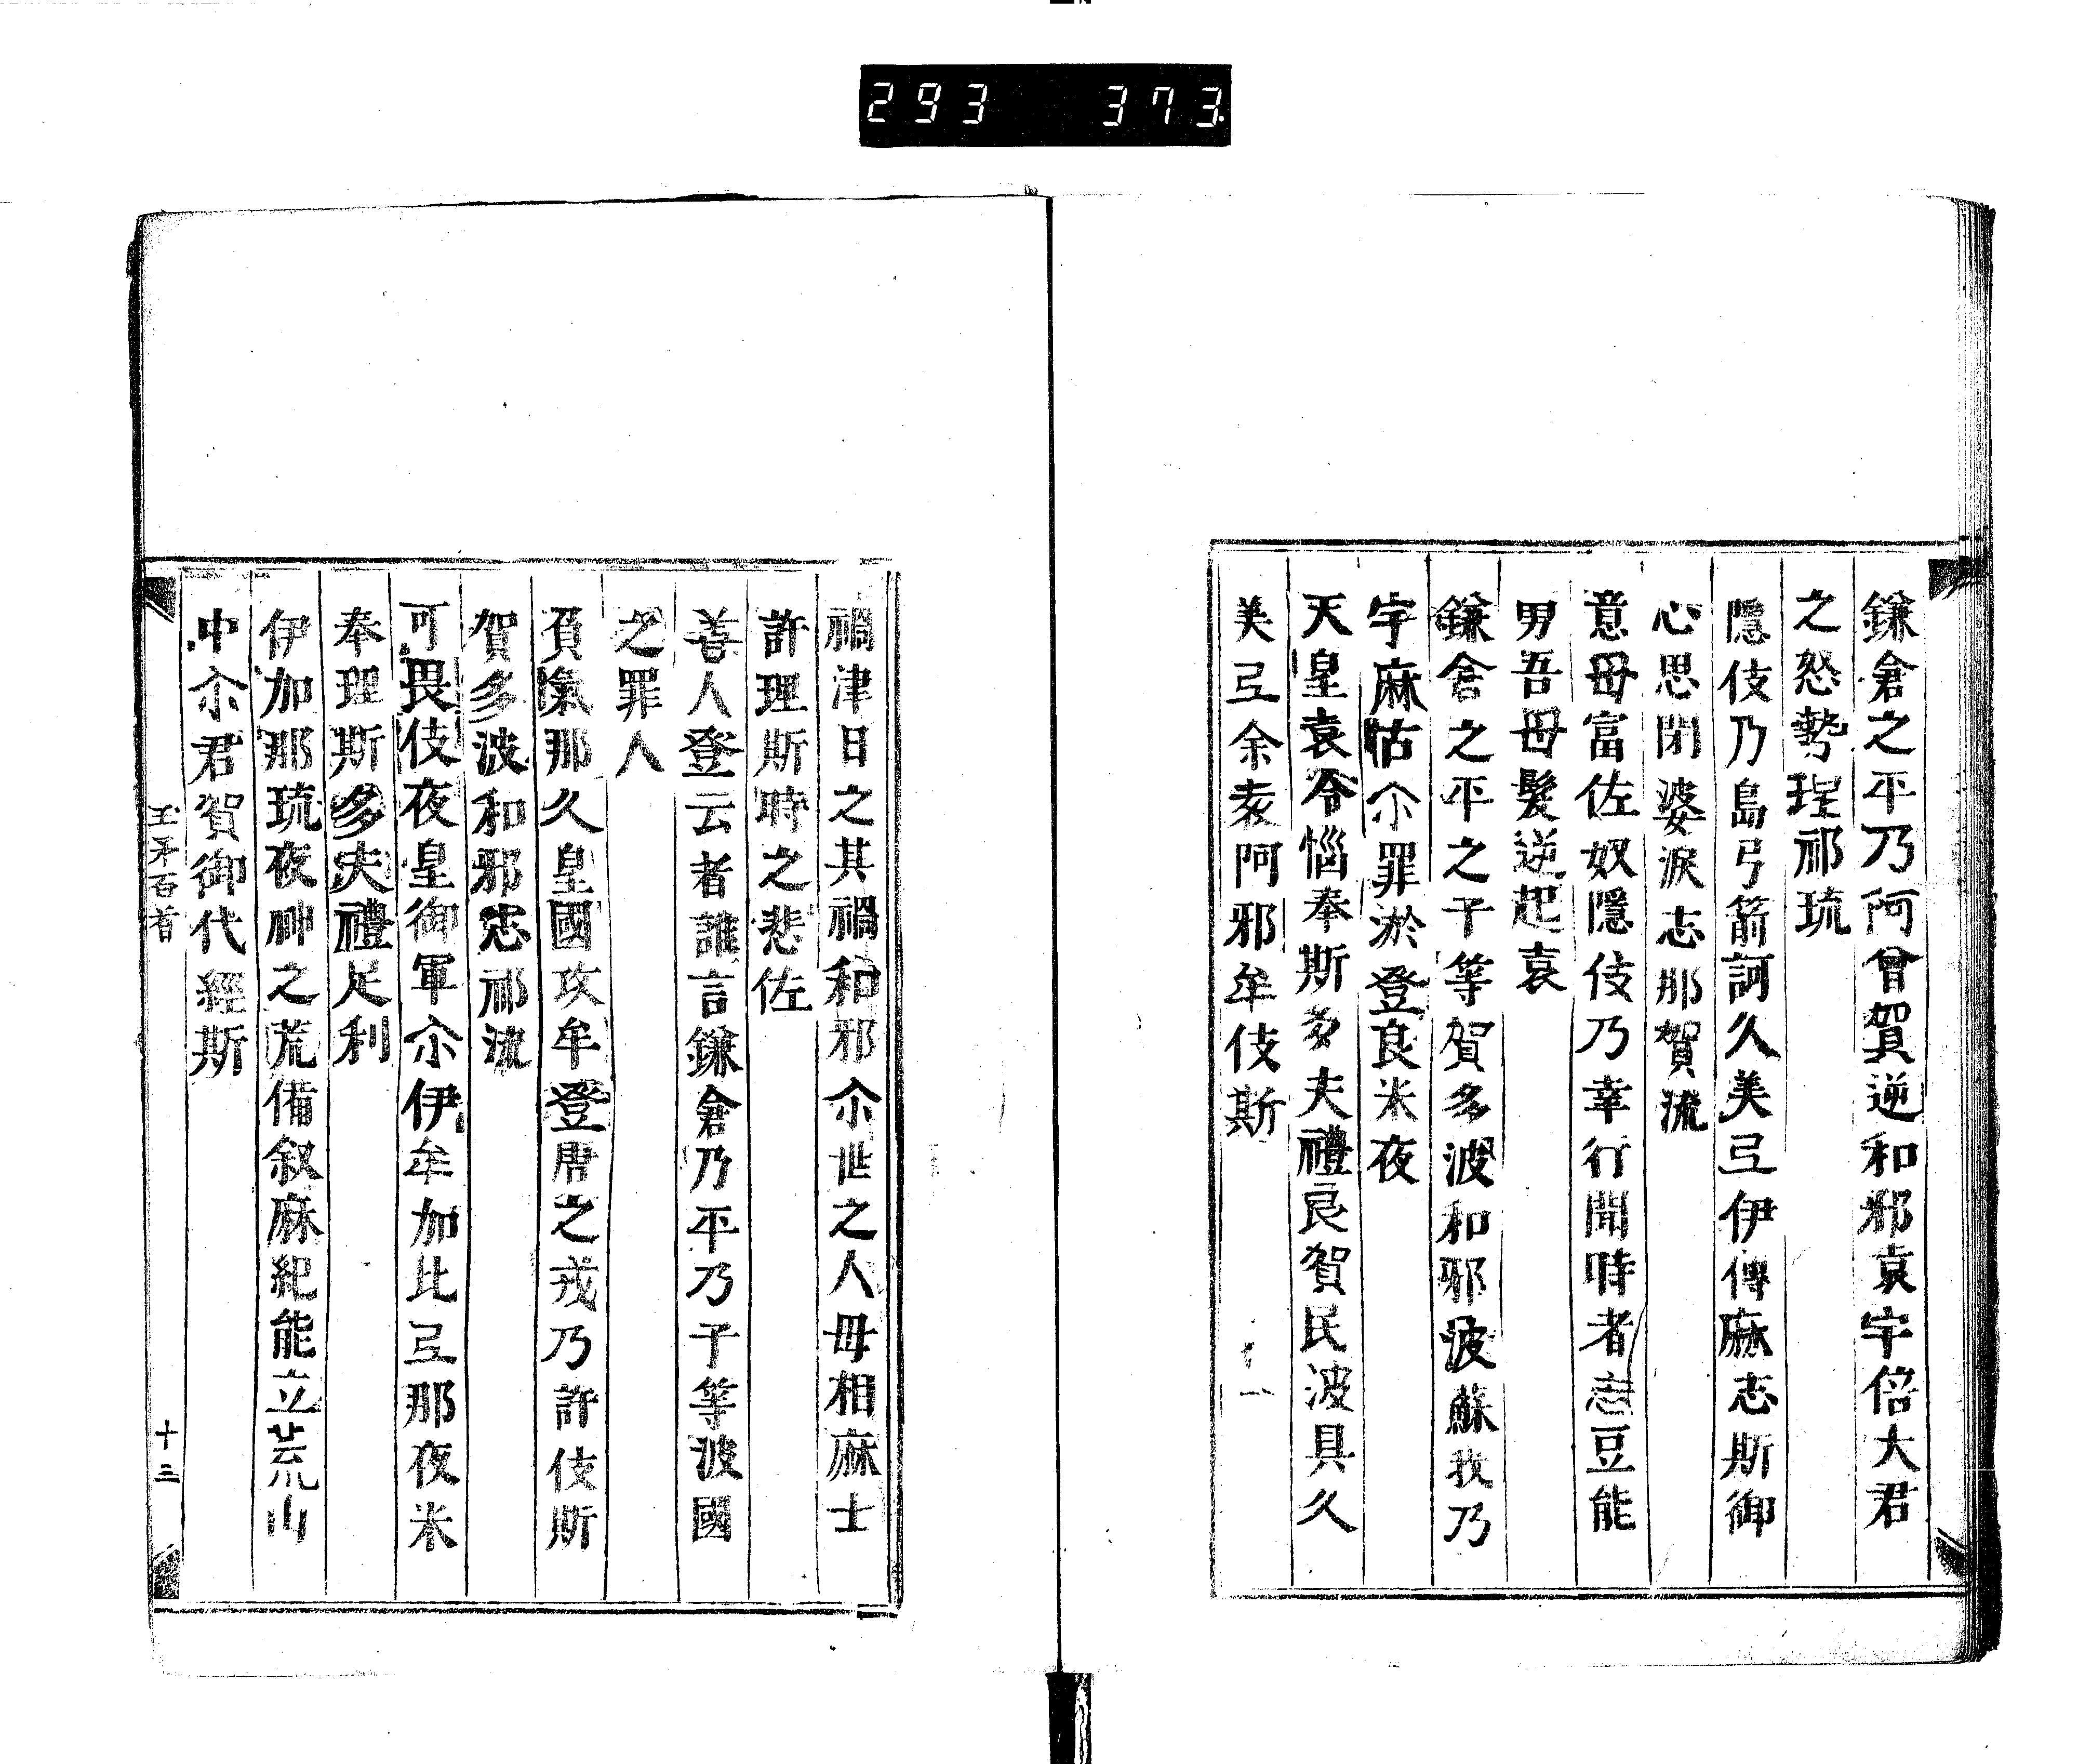 293 373
鎌倉之平乃阿曾賀逆和邪袁宇倍大君
之怒勢理祁琉
隠伎乃島弓箭訶久美弖伊傳麻志斯御
心思閇婆涙志那賀流
意母富佐奴隠伎乃幸行聞時者志豆能
男吾母髮逆起袁
鎌倉之平之子等賀多波和邪波蘇我乃
宇麻古尒罪淤登良米夜
天皇袁令惱奉斯多夫禮良賀民波具久
美弖余袁阿邪牟伎斯
禍津日之其禍和邪尒世之人毋相麻士
許理斯時之悲佐
善人登云者誰言鎌倉乃平乃子等波國
之罪人
負氣那久皇國攻牟登唐之戎乃許伎斯
賀多波和邪忠祁流
可畏伎夜皇御軍尒伊牟加比弖那夜米
奉理斯多夫禮足利
伊加那琉夜神之荒備叙麻紀能立荒山
中尒君賀御代經斯
玉矛百首
十三